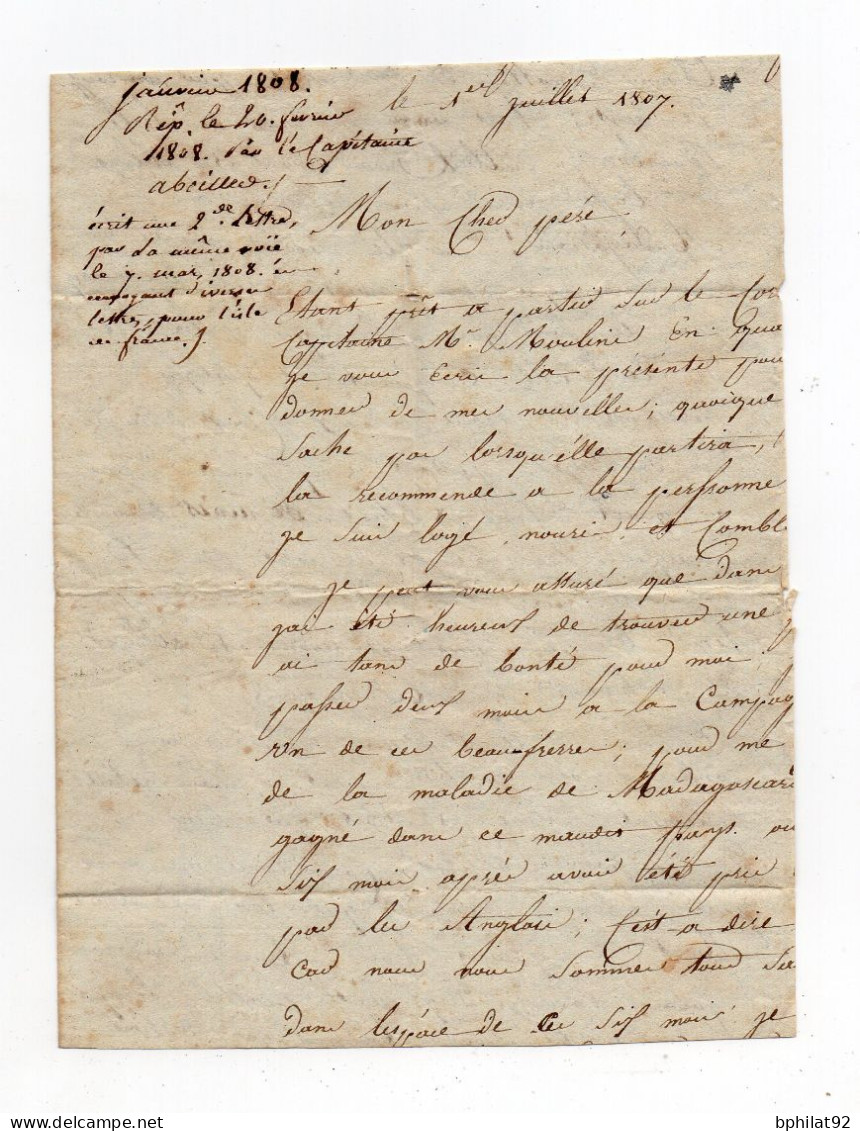 janvier 1808.
Rép. le 20. fevrier
1808. Par le Capitaine
abeille ./.
écrit une 2.de Lettre,
par La même voïe
le 7. mars, 1808. en
envoyant diverses
lettres, pour l'isle
de france, ./.
le 1er juillet 1807.
Mon Cher pére
Etant prêt a partir sur le Cor
Capitaine Mr. Mouline En qua
je vous Ecris la présente pour
donner de mes nouvelles; quoique
sache pas lorsqu'élle partira,
la recommende a la perssonne
je suis logé, nouri, et Comblé
je peut vous assuré que dans
jai été heureux de trouver une p
ai tans de bonté pour moi;
passer deux mois a la Campag
un de ces beaufrerres; pour me
de la maladie de Madagascar
gagné dans ce maudis pays. ou
six mois aprés avoir été pris
par les Anglais; C'est a dire
Car nous nous sommes tous
dans lespace de Ces six mois je
bphilat92